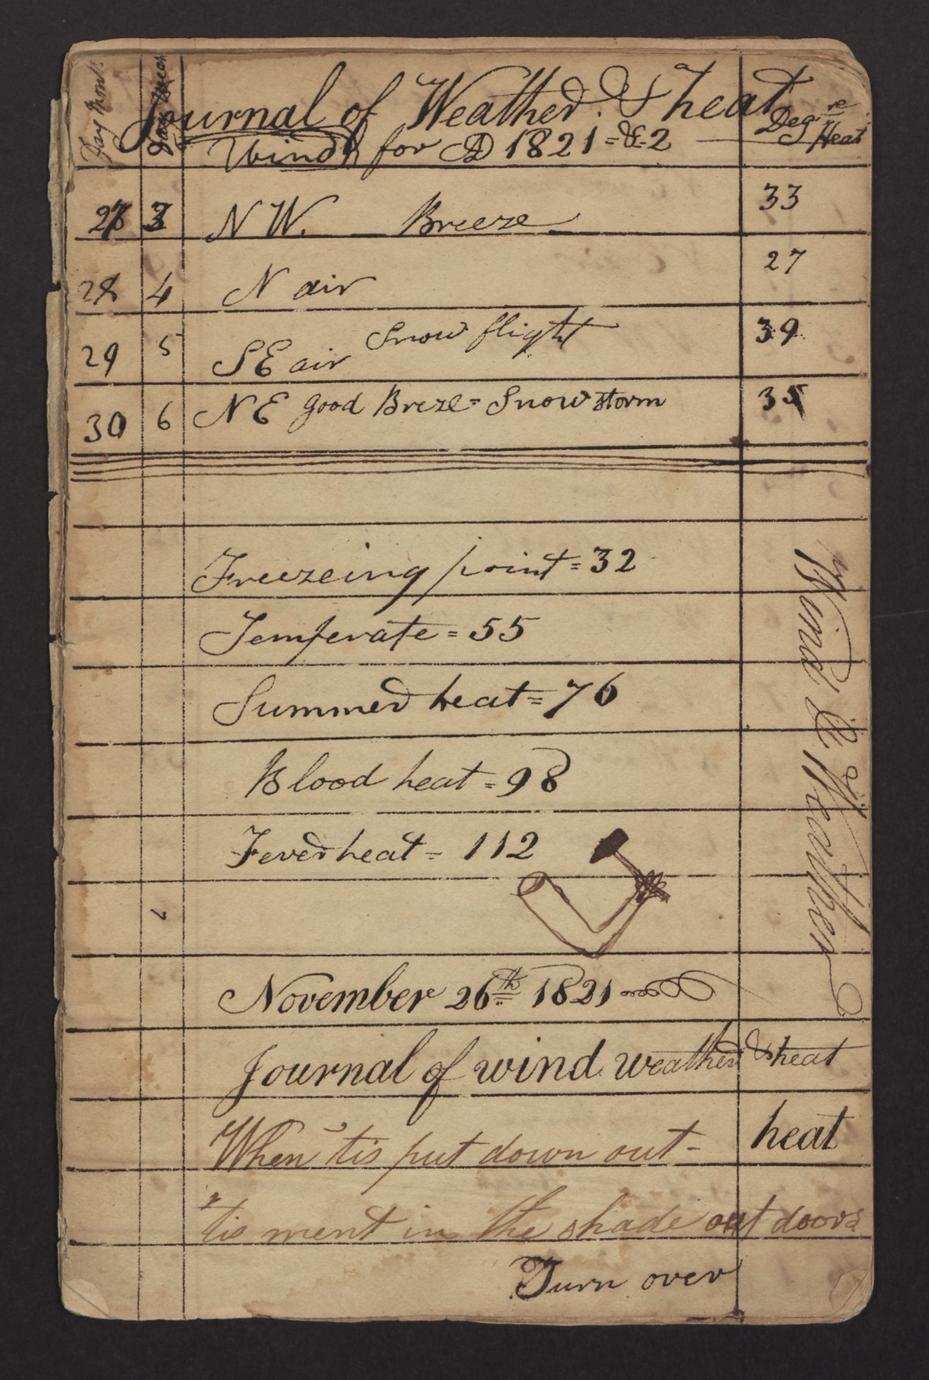 Day Mont.
Day Week
Journal of Weather & heat
Wind for AD 1821=&-2
Deg re Heat
27 3 N W. Breeze 33
28 4 N air 27
29 5 S E air Snow flight 39
30 6 N E good Breze= Snow storm 35
Freezeing point = 32
Temperate = 55
Summer heat = 76
Blood heat = 98
Fever heat = 112
Wind & Weather
November 26th 1821
Journal of wind weather & heat
When tis put down out- heat
tis ment in the shade out doors
Turn over